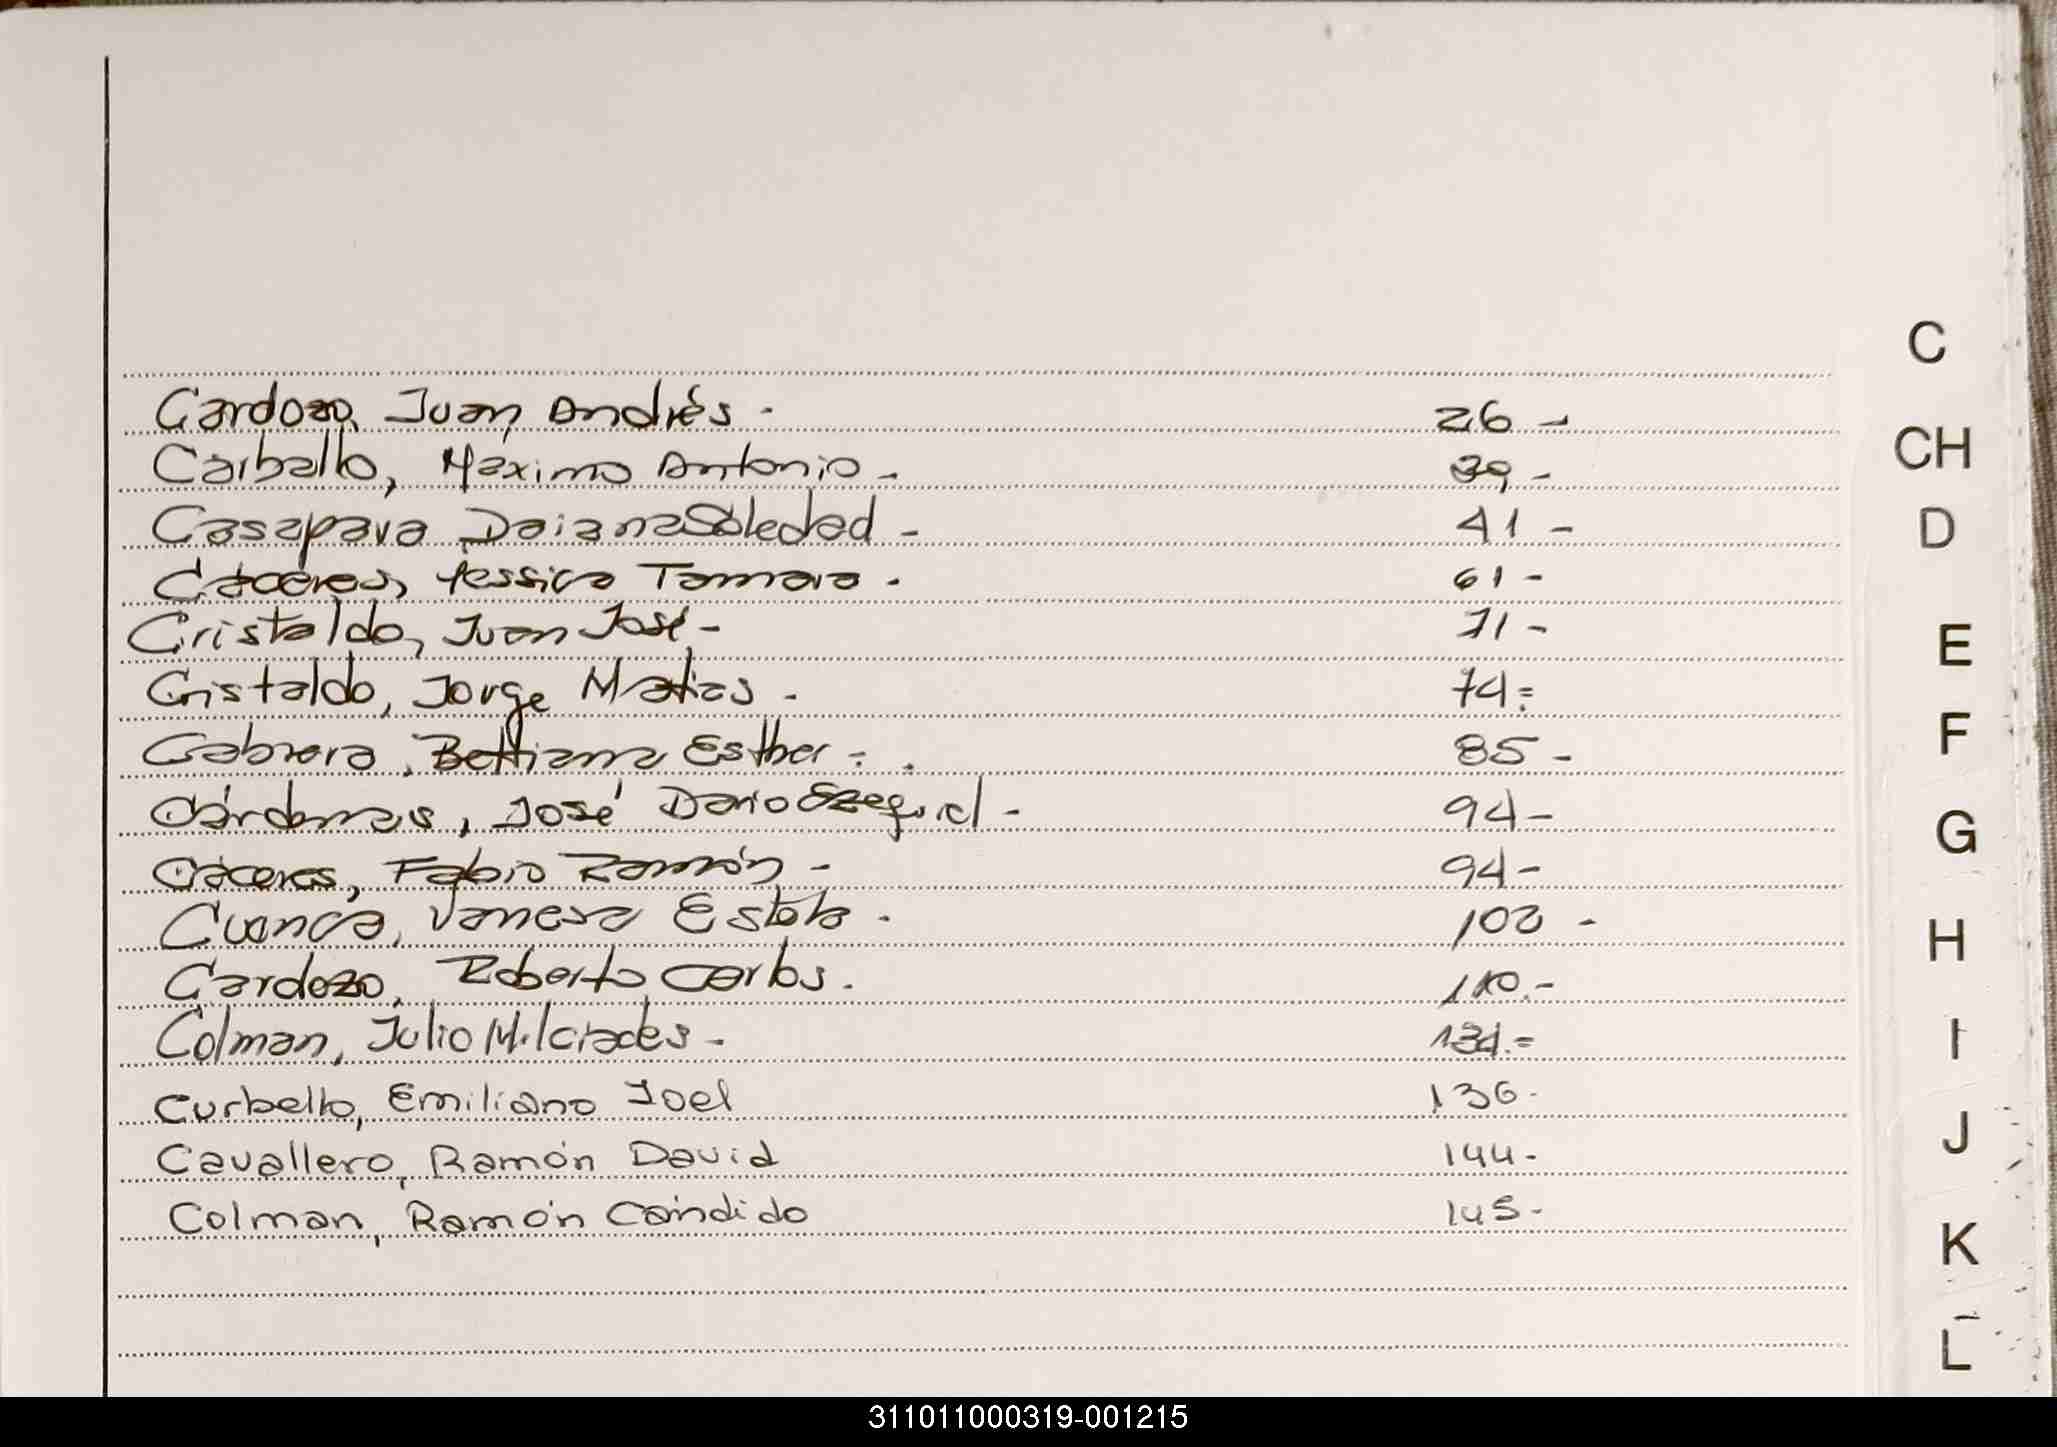 C
Cardozo, Juan Andrés - 26 -
CH
Carballo, Máximo Antonio - 39 -
Casapava Daiana Soledad - 41 -
D
Cáceres, Yessica Tamara - 61 -
Cristaldo, Juan José - 71 -
E
Cristaldo, Jorge Matias - 74 =
F
Cabrera, Bettiana Esther - 85 -
Cárdenas, José Dario Ezequiel - 94 -
G
Cáceres, Fabio Ramón - 94 -
Cuenca, Vanesa Estela - 102 -
H
Cardozo, Roberto Carlos. 110.-
Colman, Julio Milciades - 134.=
I
Curbello, Emiliano Joel 136-
J
Cavallero, Ramón David 144-
Colman, Ramón Cándido 145-
K
L
311011000319-001215